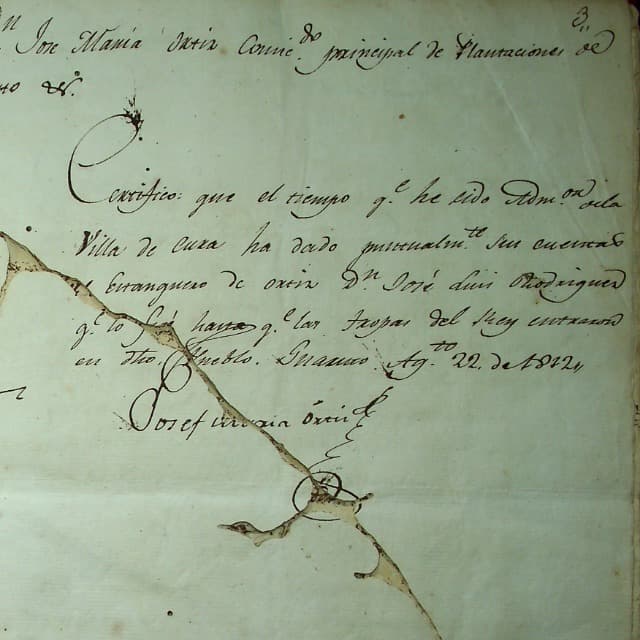 3.,
n
Jose Maria Ortiz Comic.do principal de Plantaciones de
to &c.
Certifico: que el tiempo q.e he sido Adm.or de la
Villa de Cura ha dado puntualm.te sus cuentas
el Estanquero de Ortiz D.n José Luis Rodriguez
q.e lo fué hasta q.e las tropas del Rey entraron
en dho. Pueblo. Guarico Ag.to 22. de 1812,,
Josef Maria Ortiz